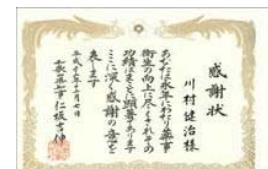 感謝状
川村健治様
あなたは永年にわたり薬事
衛生の向上に尽くされその
功績はまことに顕著であります
ここに深く感謝の意を
表します
平成二十二年十二月七日
和歌山県知事 仁坂吉伸